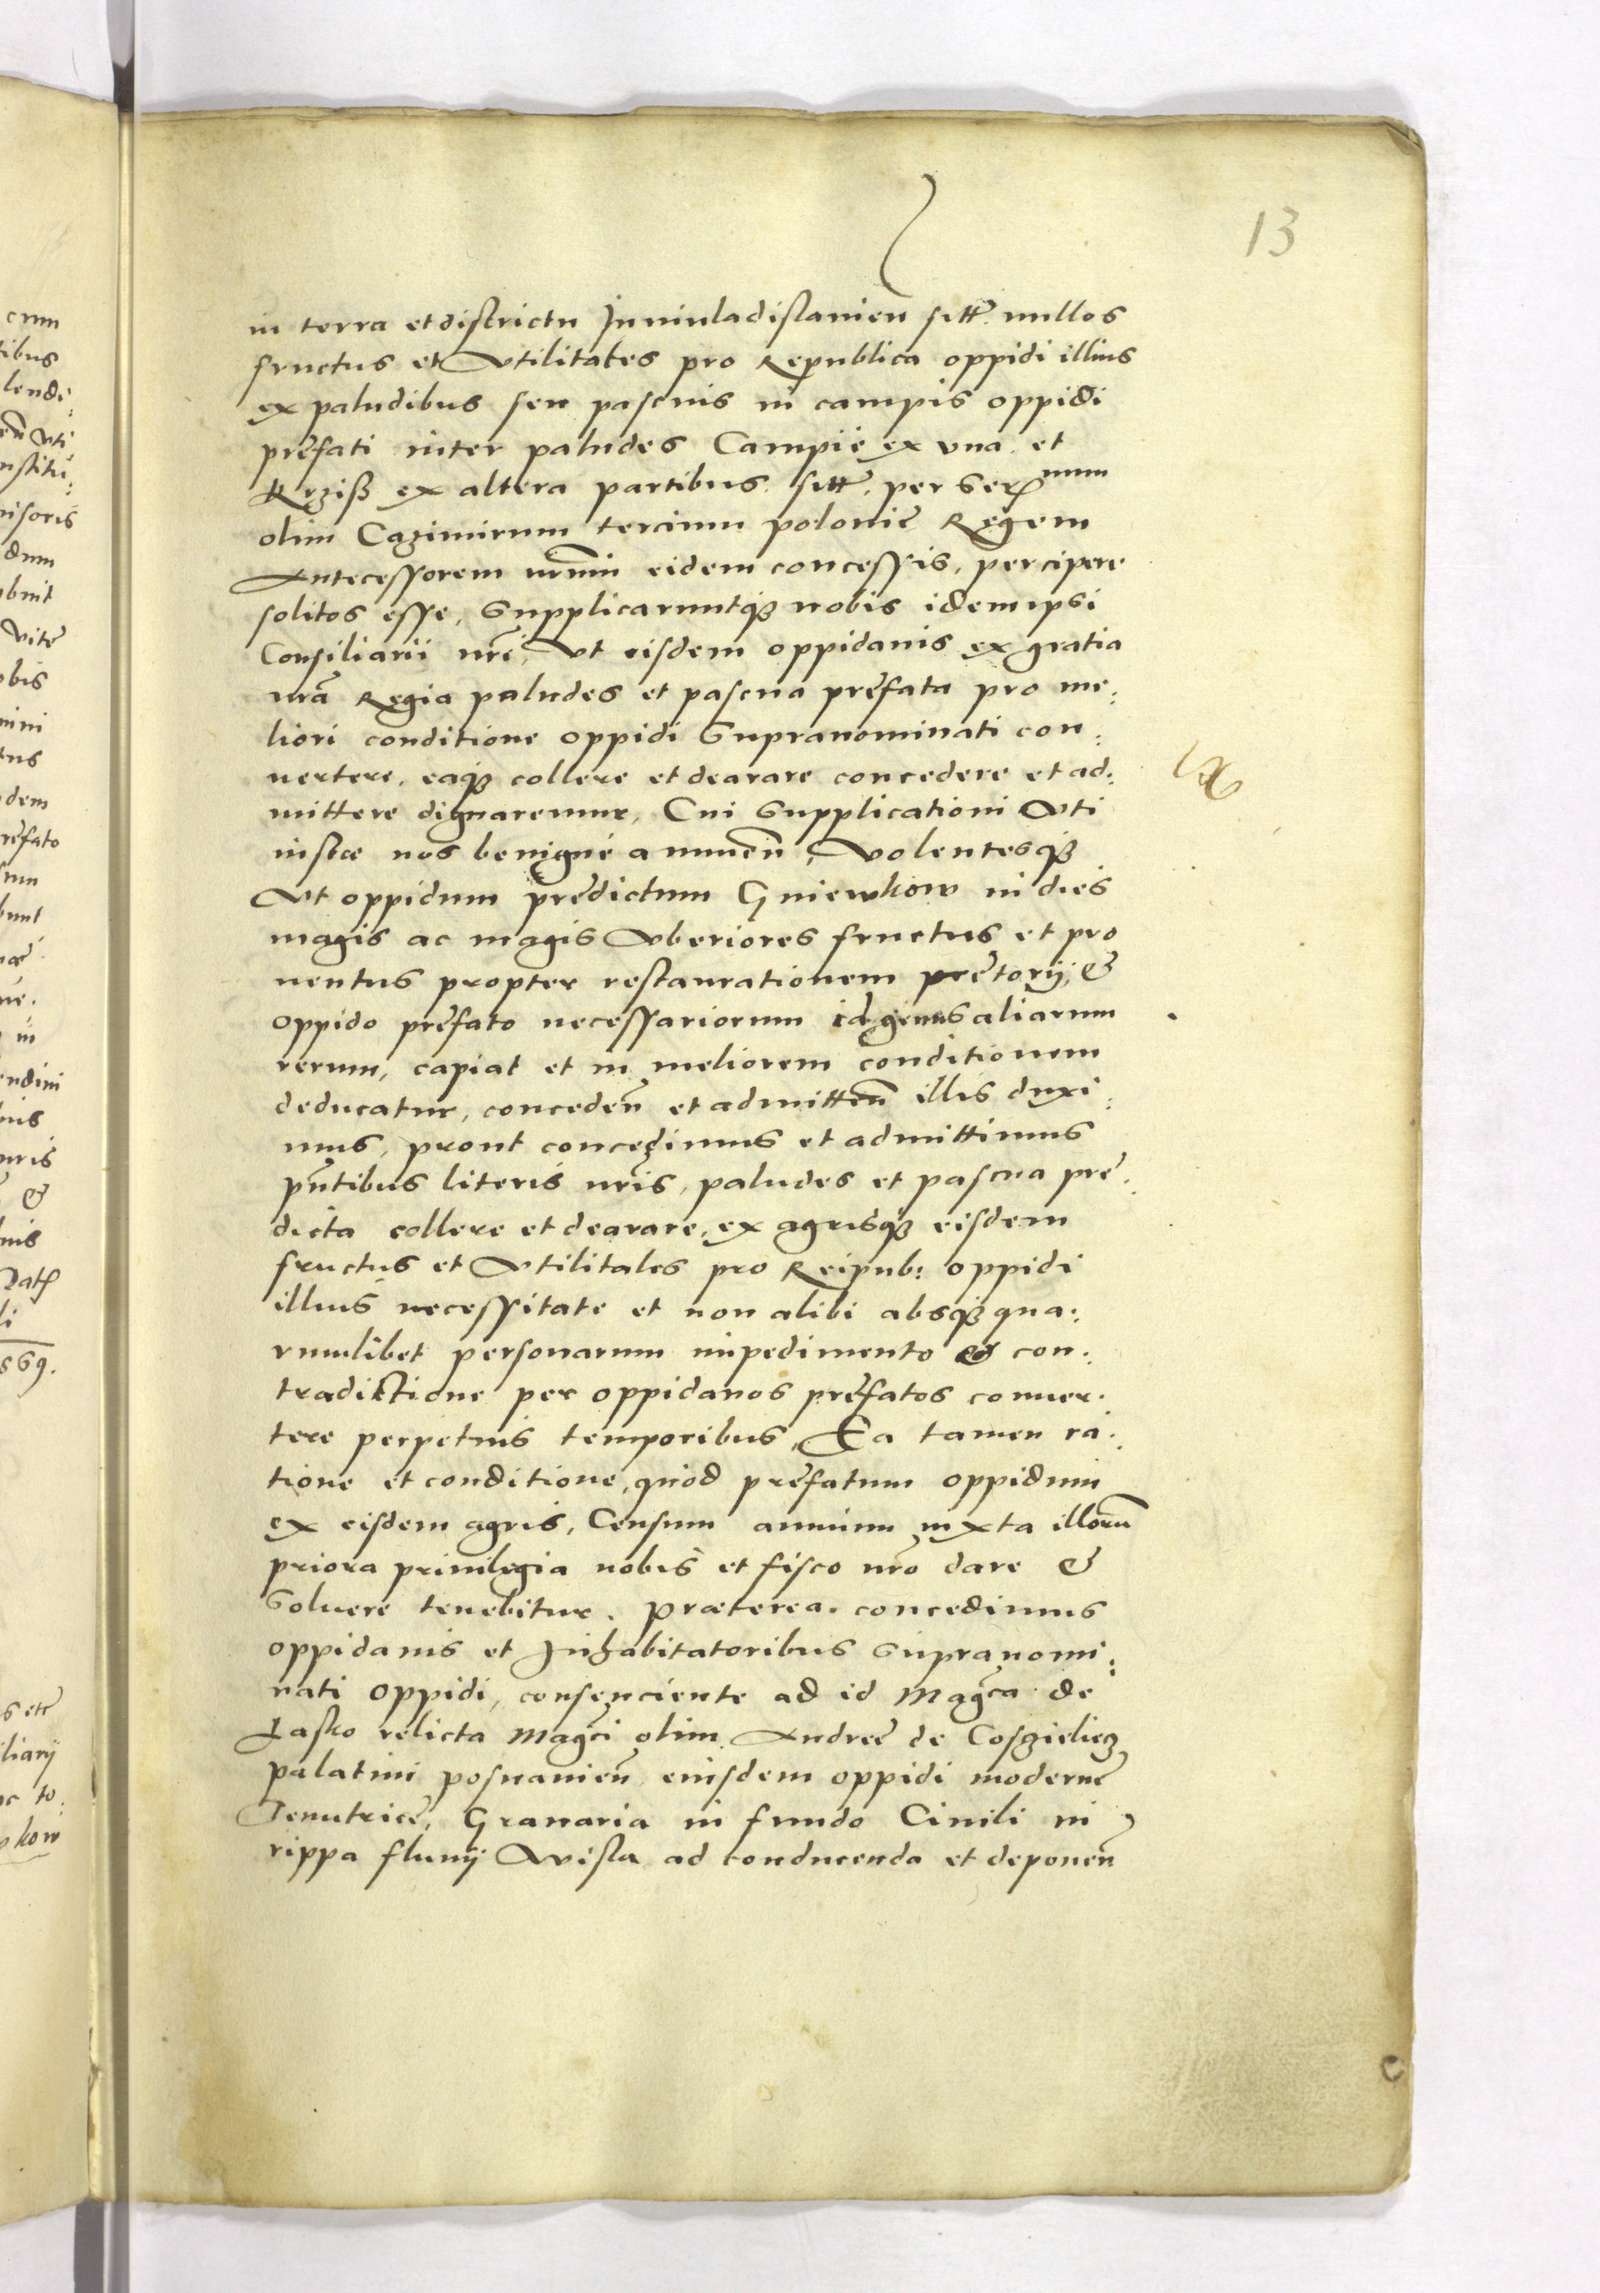 13
in terra et districtu Juniuladislauien sitt. nullos
fructus et Vtilitates pro Republica oppidi illius
ex paludibus seu pascuis in campis oppidi
prefati inter paludes Campie ex vna et
Krziß ex altera partibus sitt. per Ser^mum
olim Cazimirum tercium polonie Regem
Antecessorem nrum eidem concessis, percipere
solitos esse, Supplicaruntqз nobis idem ipsi
Consiliarii nri, Vt eisdem oppidanis ex gratia
nra Regia paludes et pascua prefata pro me:
liori conditione oppidi Supranominati con:
uertere, eaqз collere et dearare concedere et ad:
mittere dignaremur, Cui Supplicationi Vti
iustæ nos benigne annuen, Volentesqз
Vt oppidum predictum Gniewkow in dies
magis ac magis Vberiores fructus et pro
uentus propter restaurationem pretorij, &
oppido prefato necessariorum id genus aliarum
rerum, capiat et in meliorem conditionem
deducatur, conceden et admitten illis duxi:
mus, prout concedimus et admittimus
pntibus literis nris, paludes et pascua pre:
dicta collere et dearare, ex agrisqз eisdem
fructus et Vtilitates pro Reipub: oppidi
illius necessitate et non alibi absqз qua:
rumlibet personarum impedimento & con:
tradiktione per oppidanos prefatos conuer:
tere perpetuis temporibus, Ea tamen ra:
tione et conditione, quod prefatum oppidum
ex eisdem agris, Censum annuum iuxta illoru
priora priuilegia nobis et fisco nro dare &
Soluere tenebitur. Præterea concedimus
oppidanis et Inhabitatoribus Supranomi:
nati oppidi, consenciente ad id Magca de
Lasko relicta Magci olim Andree de Coszieliecz
palatini posnanien eiusdem oppidi moderne
Tenutrice, Granaria in fundo Ciuili in
rippa fluuij Wisla ad conducenda et deponen